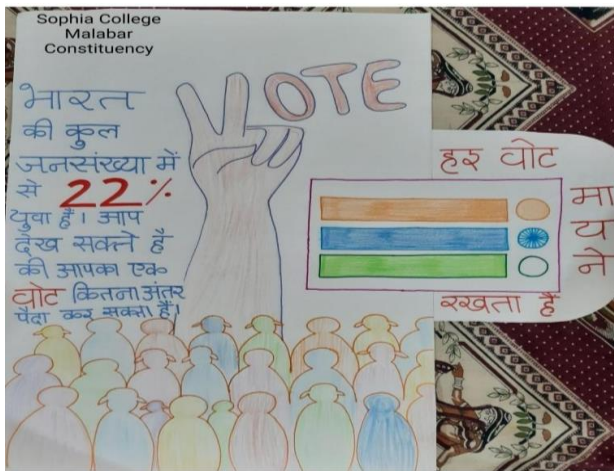 Sophia College
Malabar
Constituency
VOTE
भारत
की कुल
जनसंख्या में
से 22%
युवा हैं। आप
देख सकते हैं
की आपका एक
वोट कितना अंतर
पैदा कर सकता है।
हर वोट
मा
य
ने
रखता है